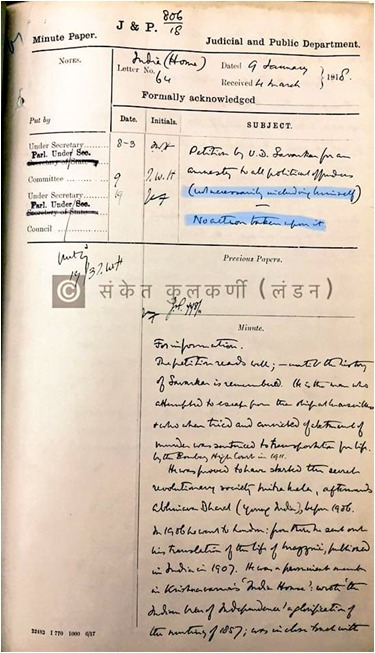 J & P. 806/18
Minute Paper.
Judicial and Public Department.
NOTES.
India (Home)
Letter No. 64
Dated 9 January
Received 4 March
1918.
Formally acknowledged
Put by
Date.
Initials.
SUBJECT.
Under Secretary
8-3
Petition by V.D. Savarkar for an
Parl. Under Sec.
Secretary of State
amnesty to all political offenders
Committee
9
J.W.H
(not necessarily including himself)
Under Secretary
19
Parl. Under/Sec.
Secretary of State
No action taken upon it
Council
Previous Papers.
© संकेत कुलकर्णी (लंडन)
Minute.
For information.
The petition reads well; — until the history
of Savarkar is remembered. He is the man who
attempted to escape from the ship at Marseilles
& who when tried and convicted of abetment of
murder was sentenced to transportation for life.
by the Bombay High Court in 1911.
He was proved to have started the secret
revolutionary society Mitra Mela, afterwards
Abhinav Bharat (Young India), before 1906.
In 1906 he went to London: from there he sent out
his translation of the life of Mazzini, published
in India in 1907. He was a prominent member
in Krishnavarma's 'India House': wrote 'the
Indian War of Independence' a glorification of
the mutiny of 1857; was in close touch with
22482 I 770 1000 6/17